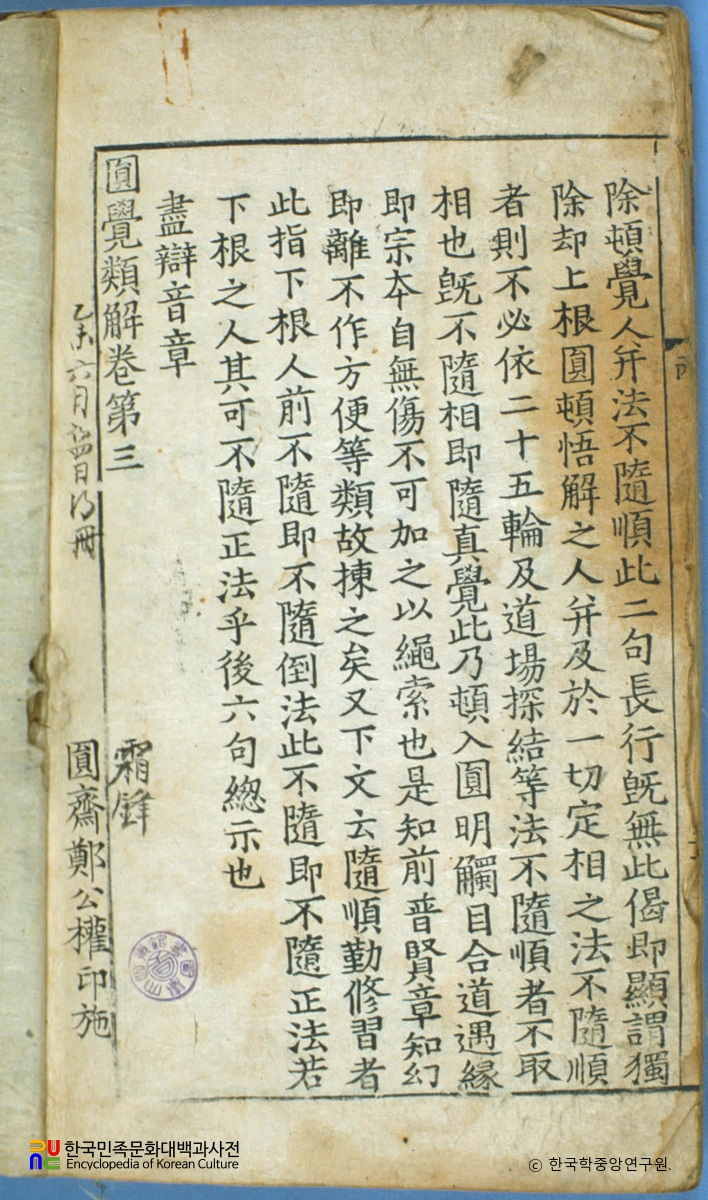 除頓覺人幷法不隨順此二句長行旣無此偈即顯謂獨
除却上根圓頓悟解之人幷及於一切定相之法不隨順
者則不必依二十五輪及道場探結等法不隨順者不取
相也旣不隨相即隨真覺此乃頓入圓明觸目合道遇縁
即宗本自無傷不可加之以繩索也是知前普賢章知幻
即離不作方便等類故揀之矣又下文云隨順勤修習者
此指下根人前不隨即不隨倒法此不隨即不隨正法若
下根之人其可不隨正法乎後六句緫示也
盡辯音章
圓覺類解卷第三
霜鋒
六月 日 冊
圓齋鄭公權印施
한국민족문화대백과사전
Encyclopedia of Korean Culture
ⓒ 한국학중앙연구원.